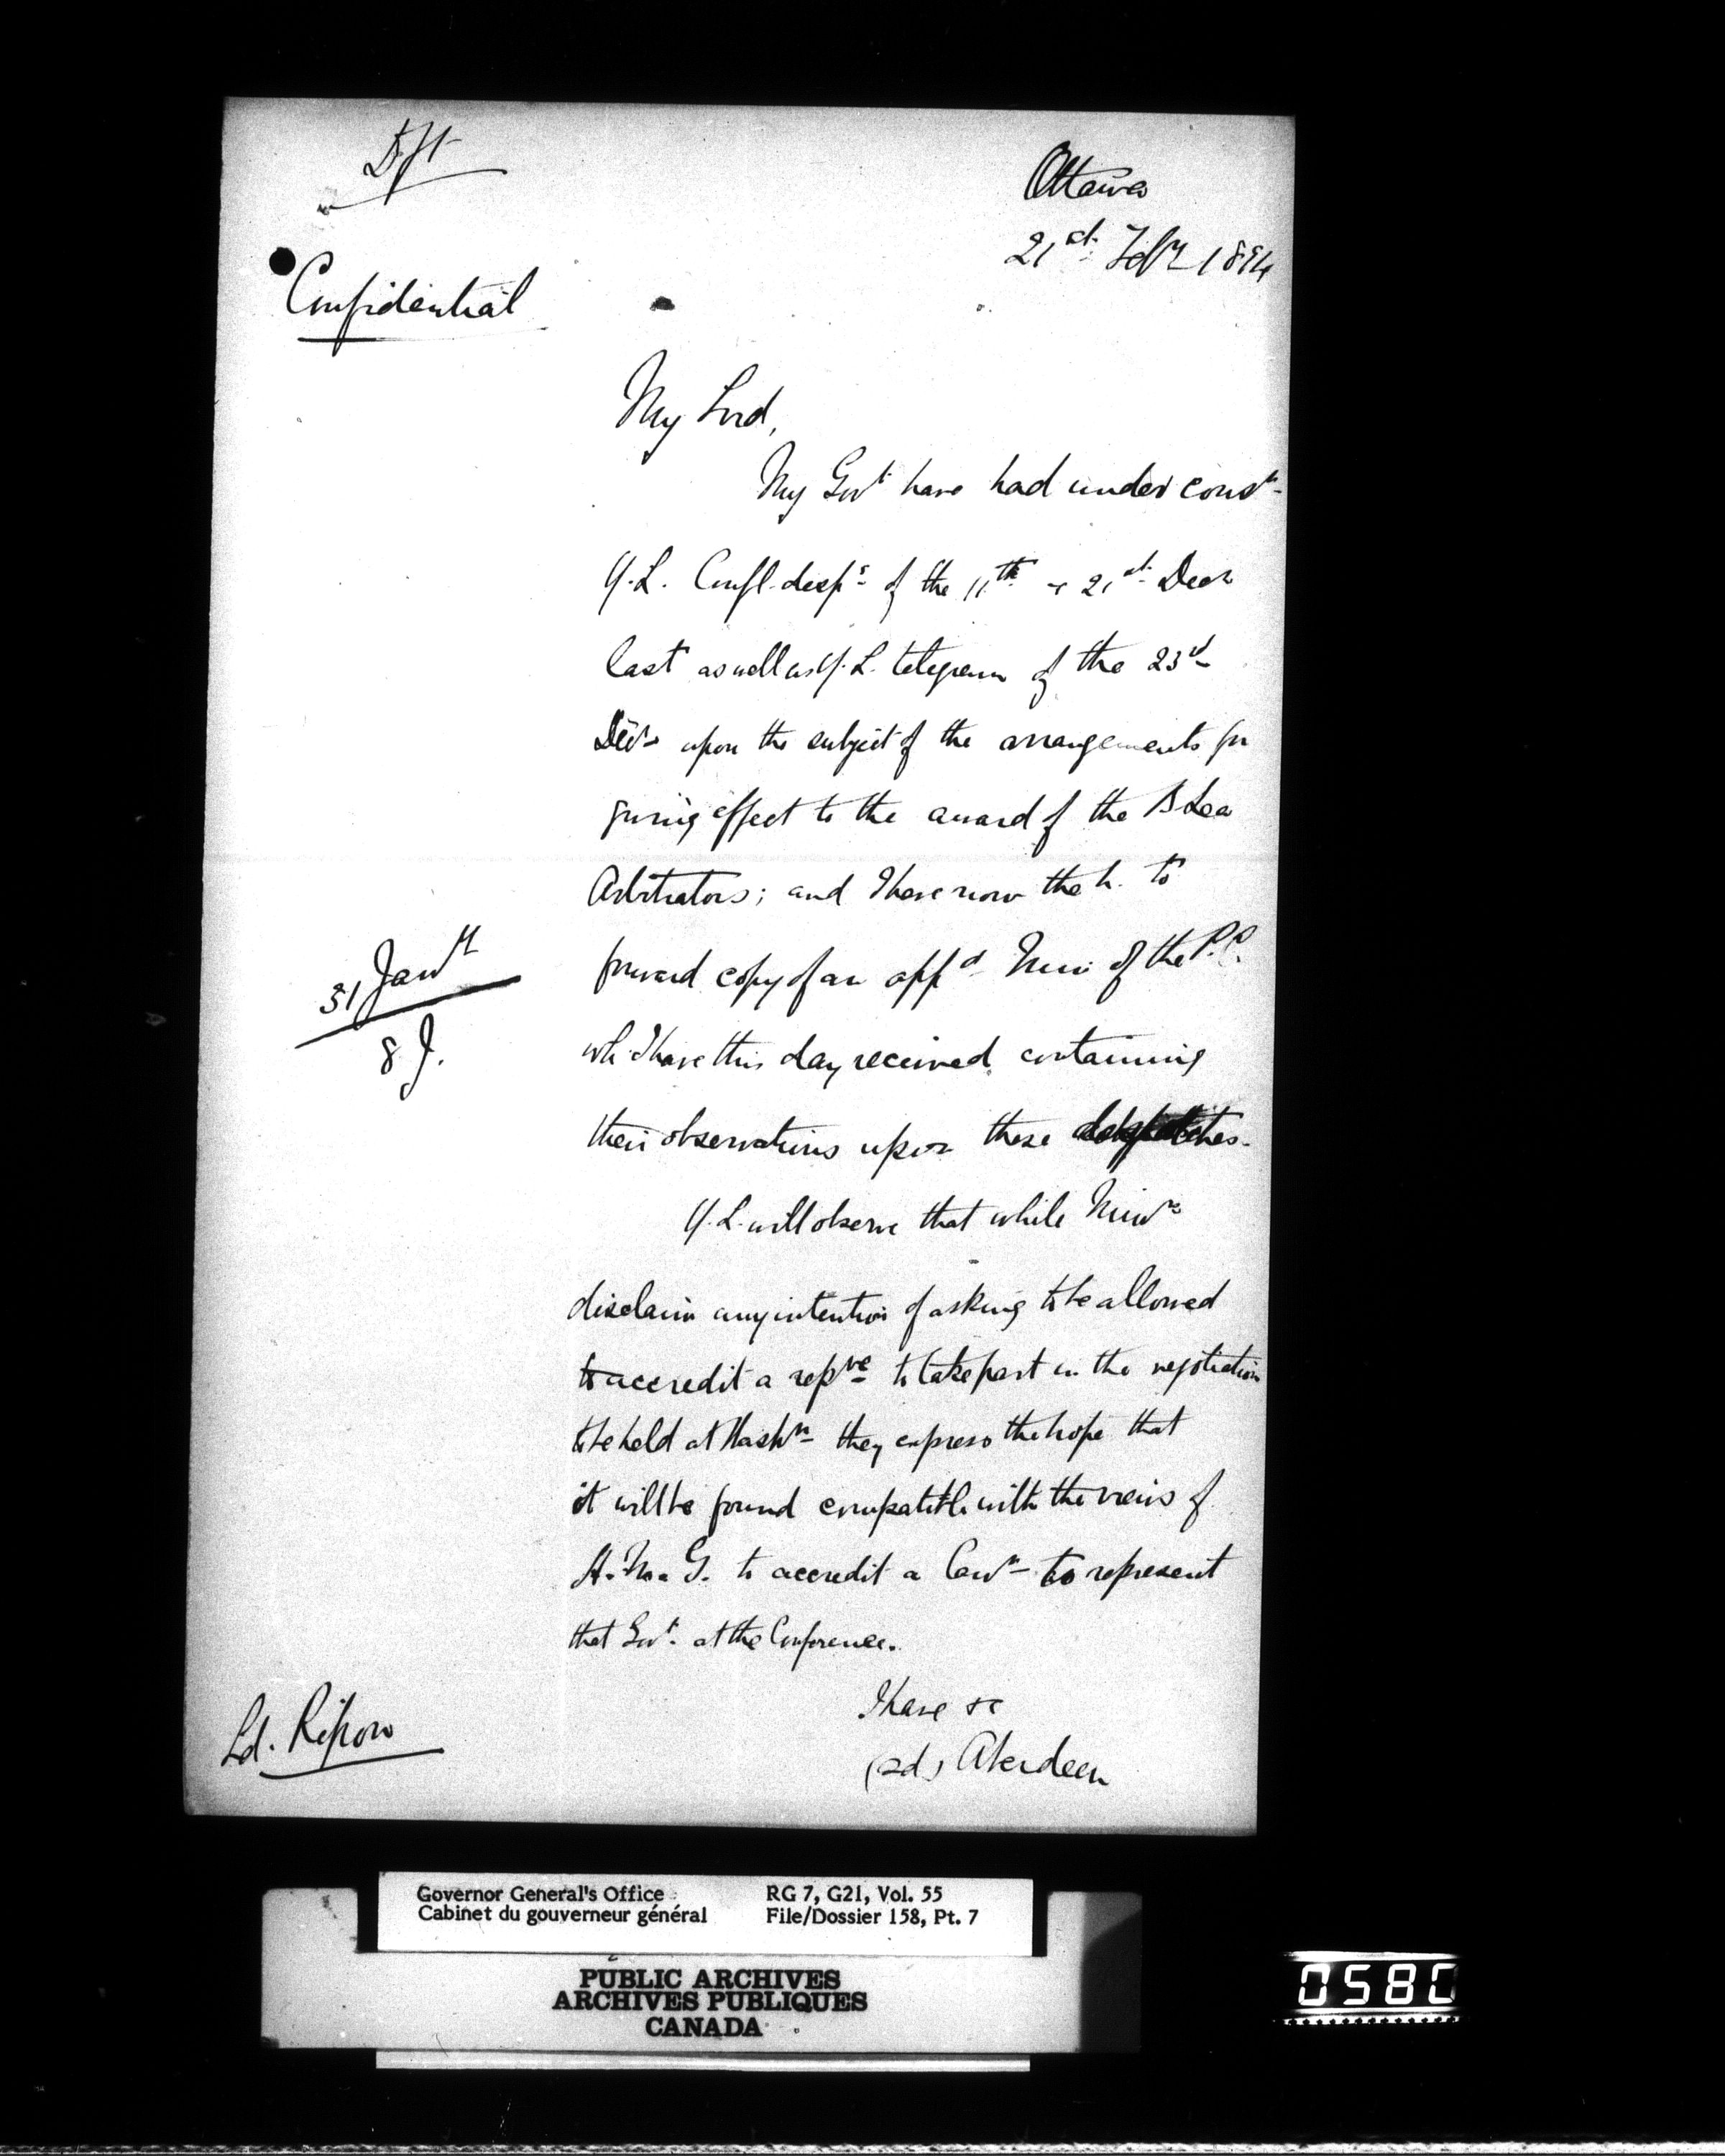 Dft
Ottawa
21st Feby 1894
Confidential
My Lord,
My Govt have had under consn
Y.L. Confl. desps of the 11th & 21st Decr
last as well as Y.L. telegram of the 23rd
Decr upon the subject of the arrangements for
giving effect to the award of the B Sea
Arbitrators; and I have now the h. to
forward copy of an appd Min of the P.C.
31 Jany
8 J.
wh. I have this day received, containing
their observations upon these despatches.
Y.L. will observe that while Minrs
disclaim any intention of asking to be allowed
to accredit a repve to take part in the negotiation
to be held at Washn they express the hope that
it will be found compatible with the views of
H.M.G. to accredit a Cann to represent
that Govt. at the Conference.
I have &c
(sd) Aberdeen
Ld. Ripon
Governor General's Office RG 7, G21, Vol. 55
Cabinet du gouverneur général File/Dossier 158, Pt. 7
PUBLIC ARCHIVES
ARCHIVES PUBLIQUES
CANADA
0580